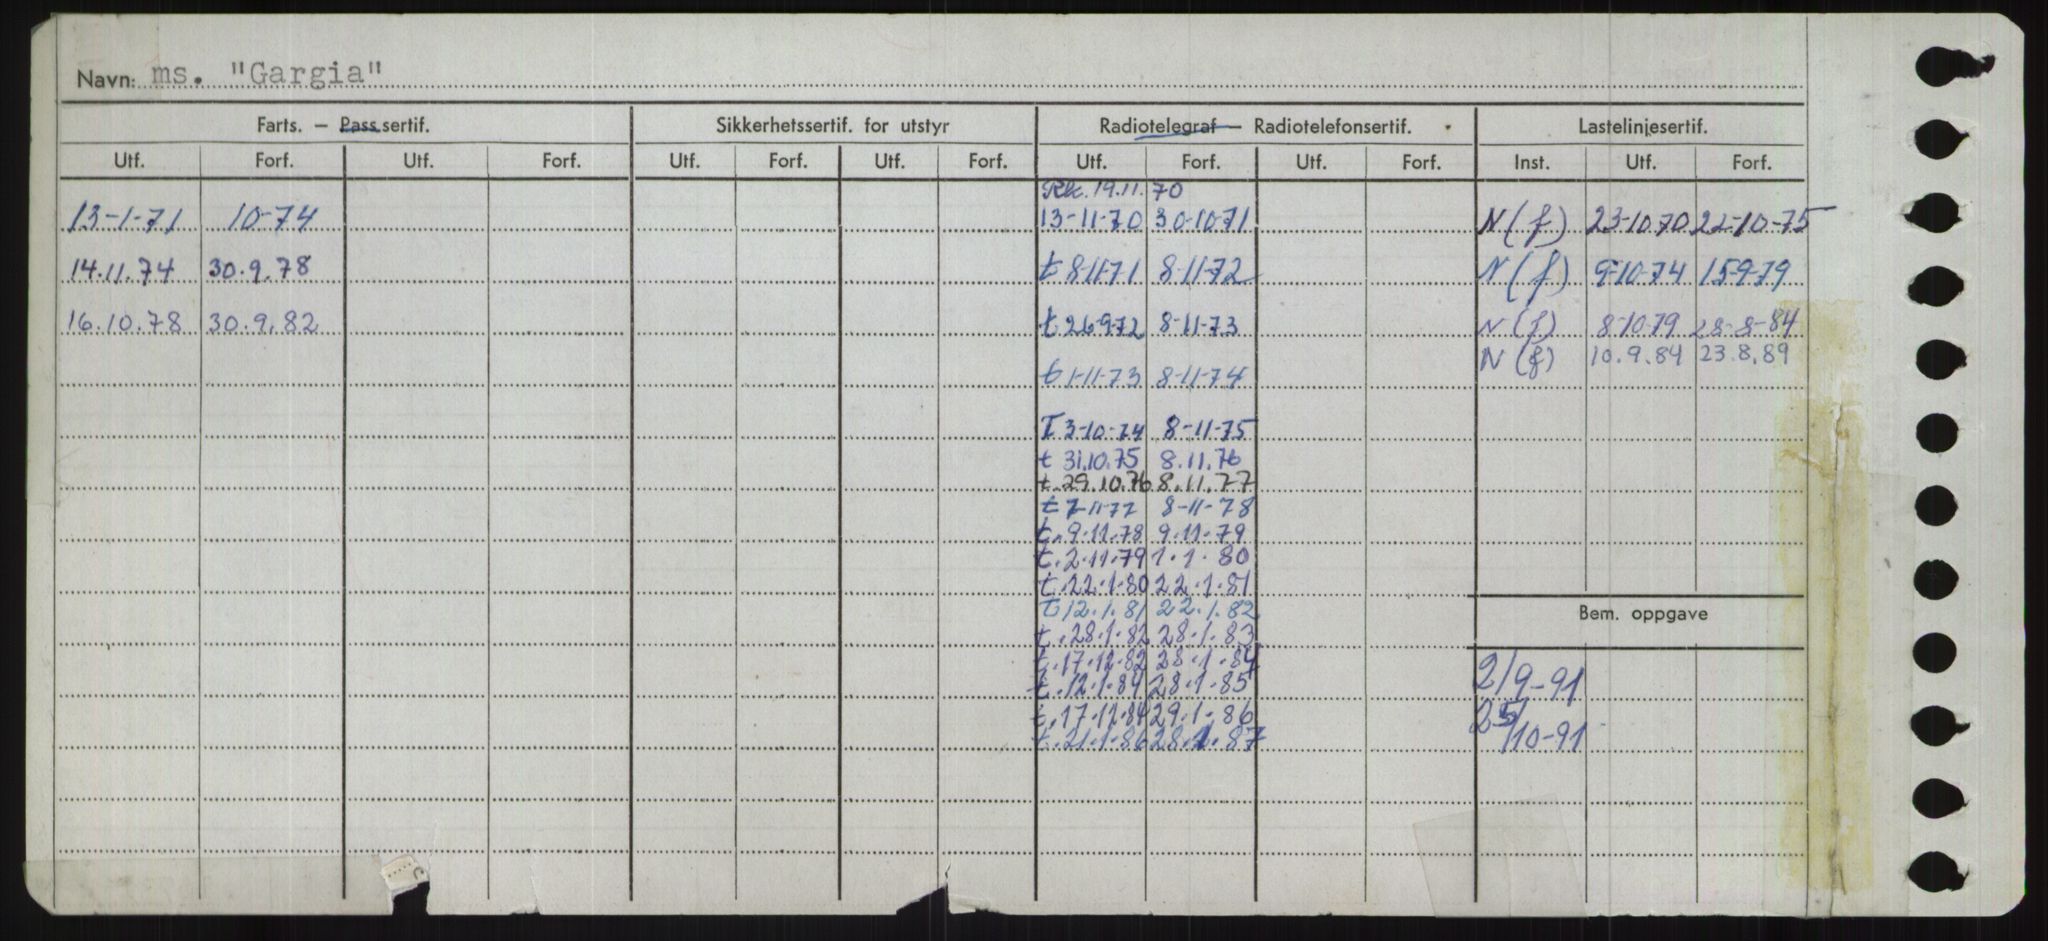 Navn: ms. "Gargia"
Farts. — Passsertif. Sikkerhetssertif. for utstyr Radiotelegraf — Radiotelefonsertif. Lastelinjesertif.
Utf. Forf. Utf. Forf. Utf. Forf. Utf. Forf. Utf. Forf. Utf. Forf. Inst. Utf. Forf.
Rk. 19.11.70
13-1-71 10-74 13-11-70 30-10-71 N (f) 23-10-70 22-10-75
14.11.74 30.9.78 t 8-11-71 8-11-72 N (f) 9-10-74 15-9-79
16.10.78 30.9.82 t 26-9-72 8-11-73 N (f) 8-10-79 28-8-84
N (f) 10.9.84 23.8.89
t 1-11-73 8-11-74
T 3-10-74 8-11-75
t 31.10.75 8.11.76
t. 29.10.76 8.11.77
t 7-11-77 8-11-78
t. 9.11.78 9.11.79
t. 2.11.79 1.1.80
t. 22.1.80 22.1.81
t 12.1.81 22.1.82
Bem. oppgave
t. 28.1.82 28.1.83
t. 17.12.82 28.1.84
t. 12.1.84 28.1.85
2/9-91
t. 17.12.84 29.1.86
t. 21.1.86 28.1.87
25/10-91